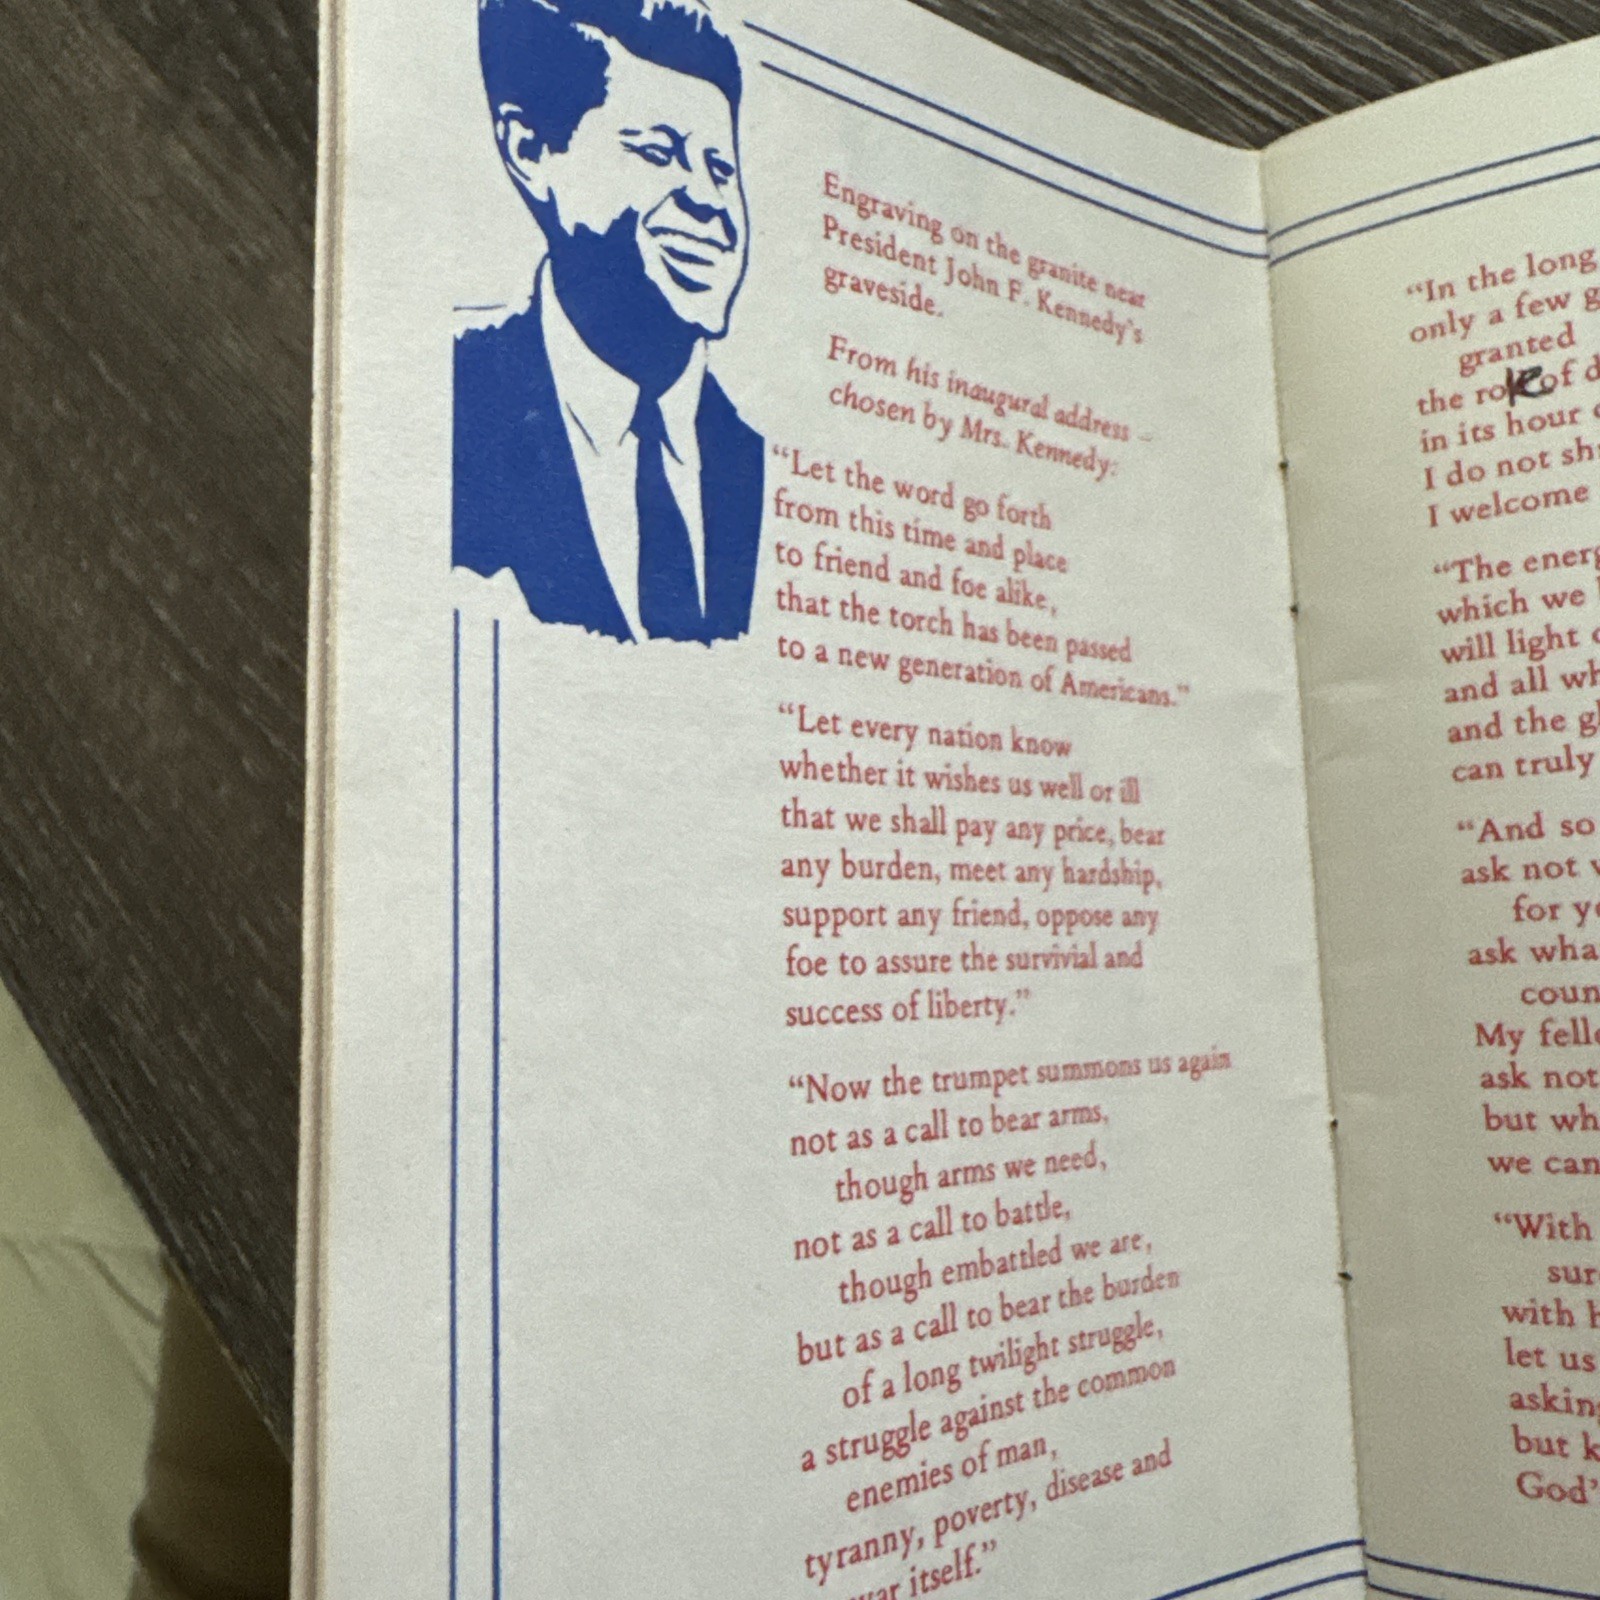 Engraving on the granite near
President John F. Kennedy's
graveside.
From his inaugural address –
chosen by Mrs. Kennedy:
“Let the word go forth
from this time and place
to friend and foe alike,
that the torch has been passed
to a new generation of Americans.”
“Let every nation know
whether it wishes us well or ill
that we shall pay any price, bear
any burden, meet any hardship,
support any friend, oppose any
foe to assure the survivial and
success of liberty.”
“Now the trumpet summons us again
not as a call to bear arms,
though arms we need,
not as a call to battle,
though embattled we are,
but as a call to bear the burden
of a long twilight struggle,
a struggle against the common
enemies of man,
tyranny, poverty, disease and
war itself.”
“In the long
only a few
granted
the role of
in its hour
I do not
I welcome
“The
which we
will light
and all
and the
can truly
“And so
ask not
for
ask
My
ask not
but
we can
“With
with
let us
but
God'